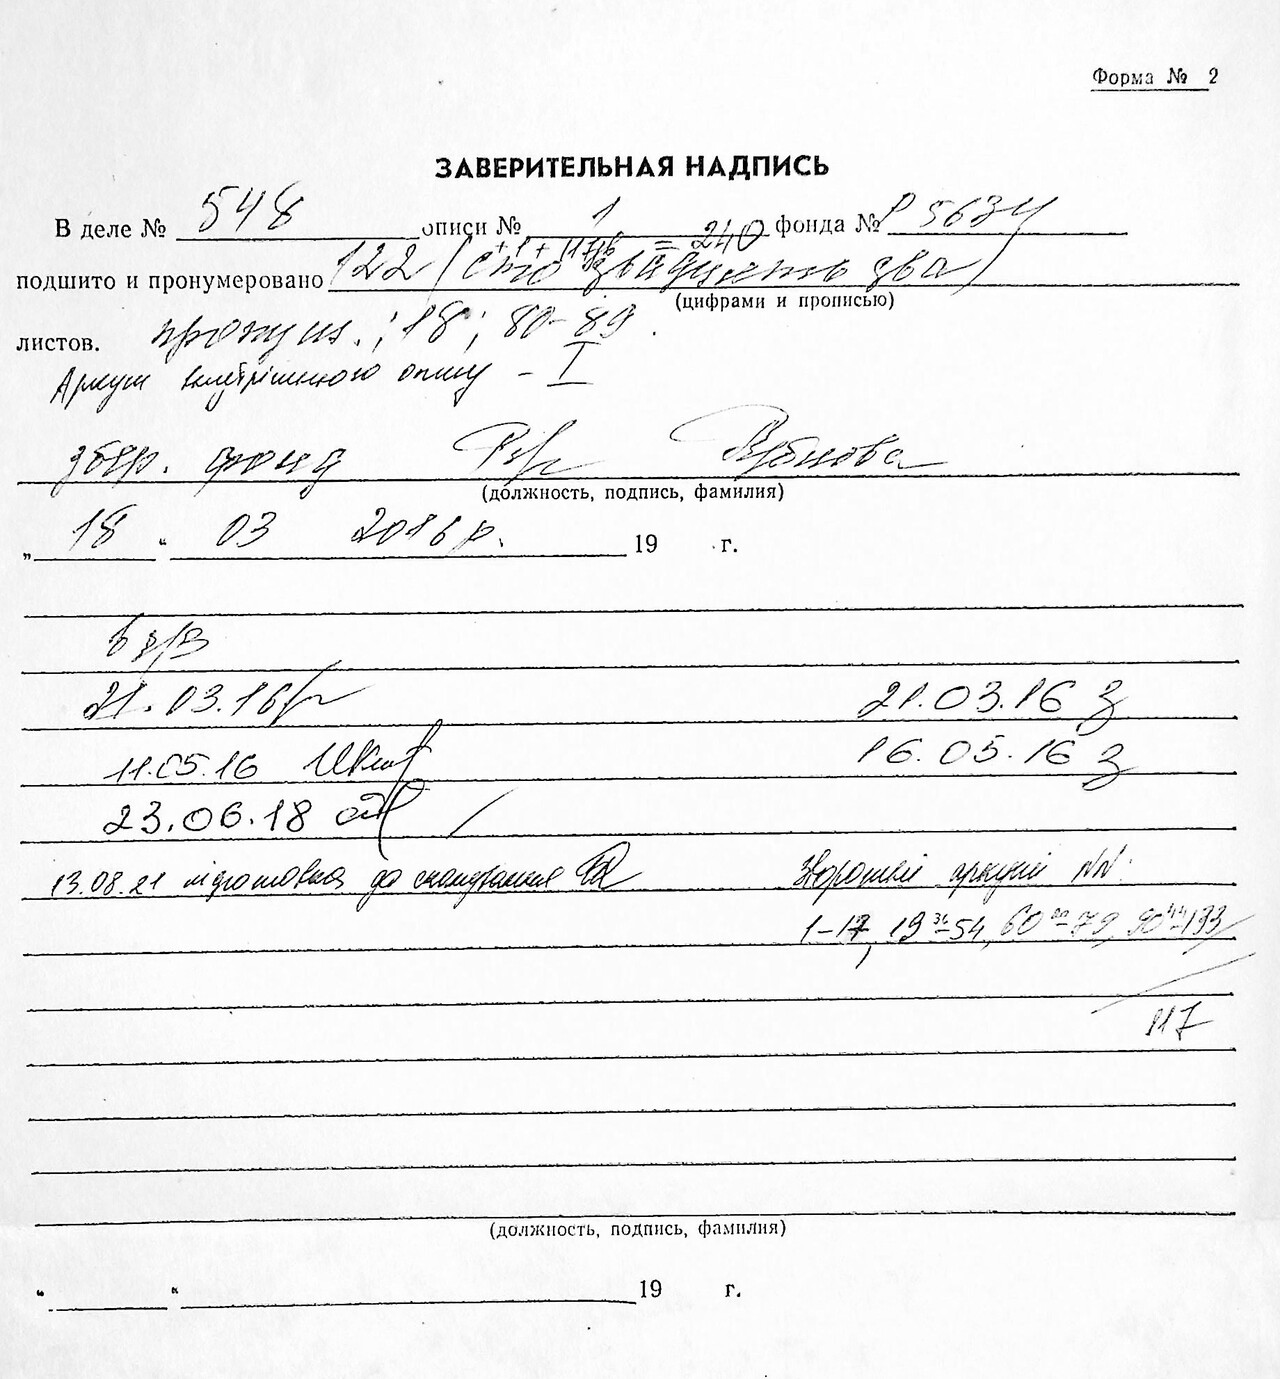 Форма № 2
ЗАВЕРИТЕЛЬНАЯ НАДПИСЬ
В деле № 548 описи № 1 фонда № Р 5634
+ 1 + 117 = 240
подшито и пронумеровано 122 (сто двадцать два)
(цифрами и прописью)
листов. пропущ.; 18; 80-89.
Аркуш внутрішнього опису - I
збер. фонд
(должность, подпись, фамилия)
„ 18 “ 03 2016 р. 19 г.
21.03.16 21.03.16
11.05.16 16.05.16
23.06.18
13.08.21 підготовка до сканування Звороти аркушів NN:
1-17, 19-54, 60-79, 90-133
117
(должность, подпись, фамилия)
“ “ 19 г.